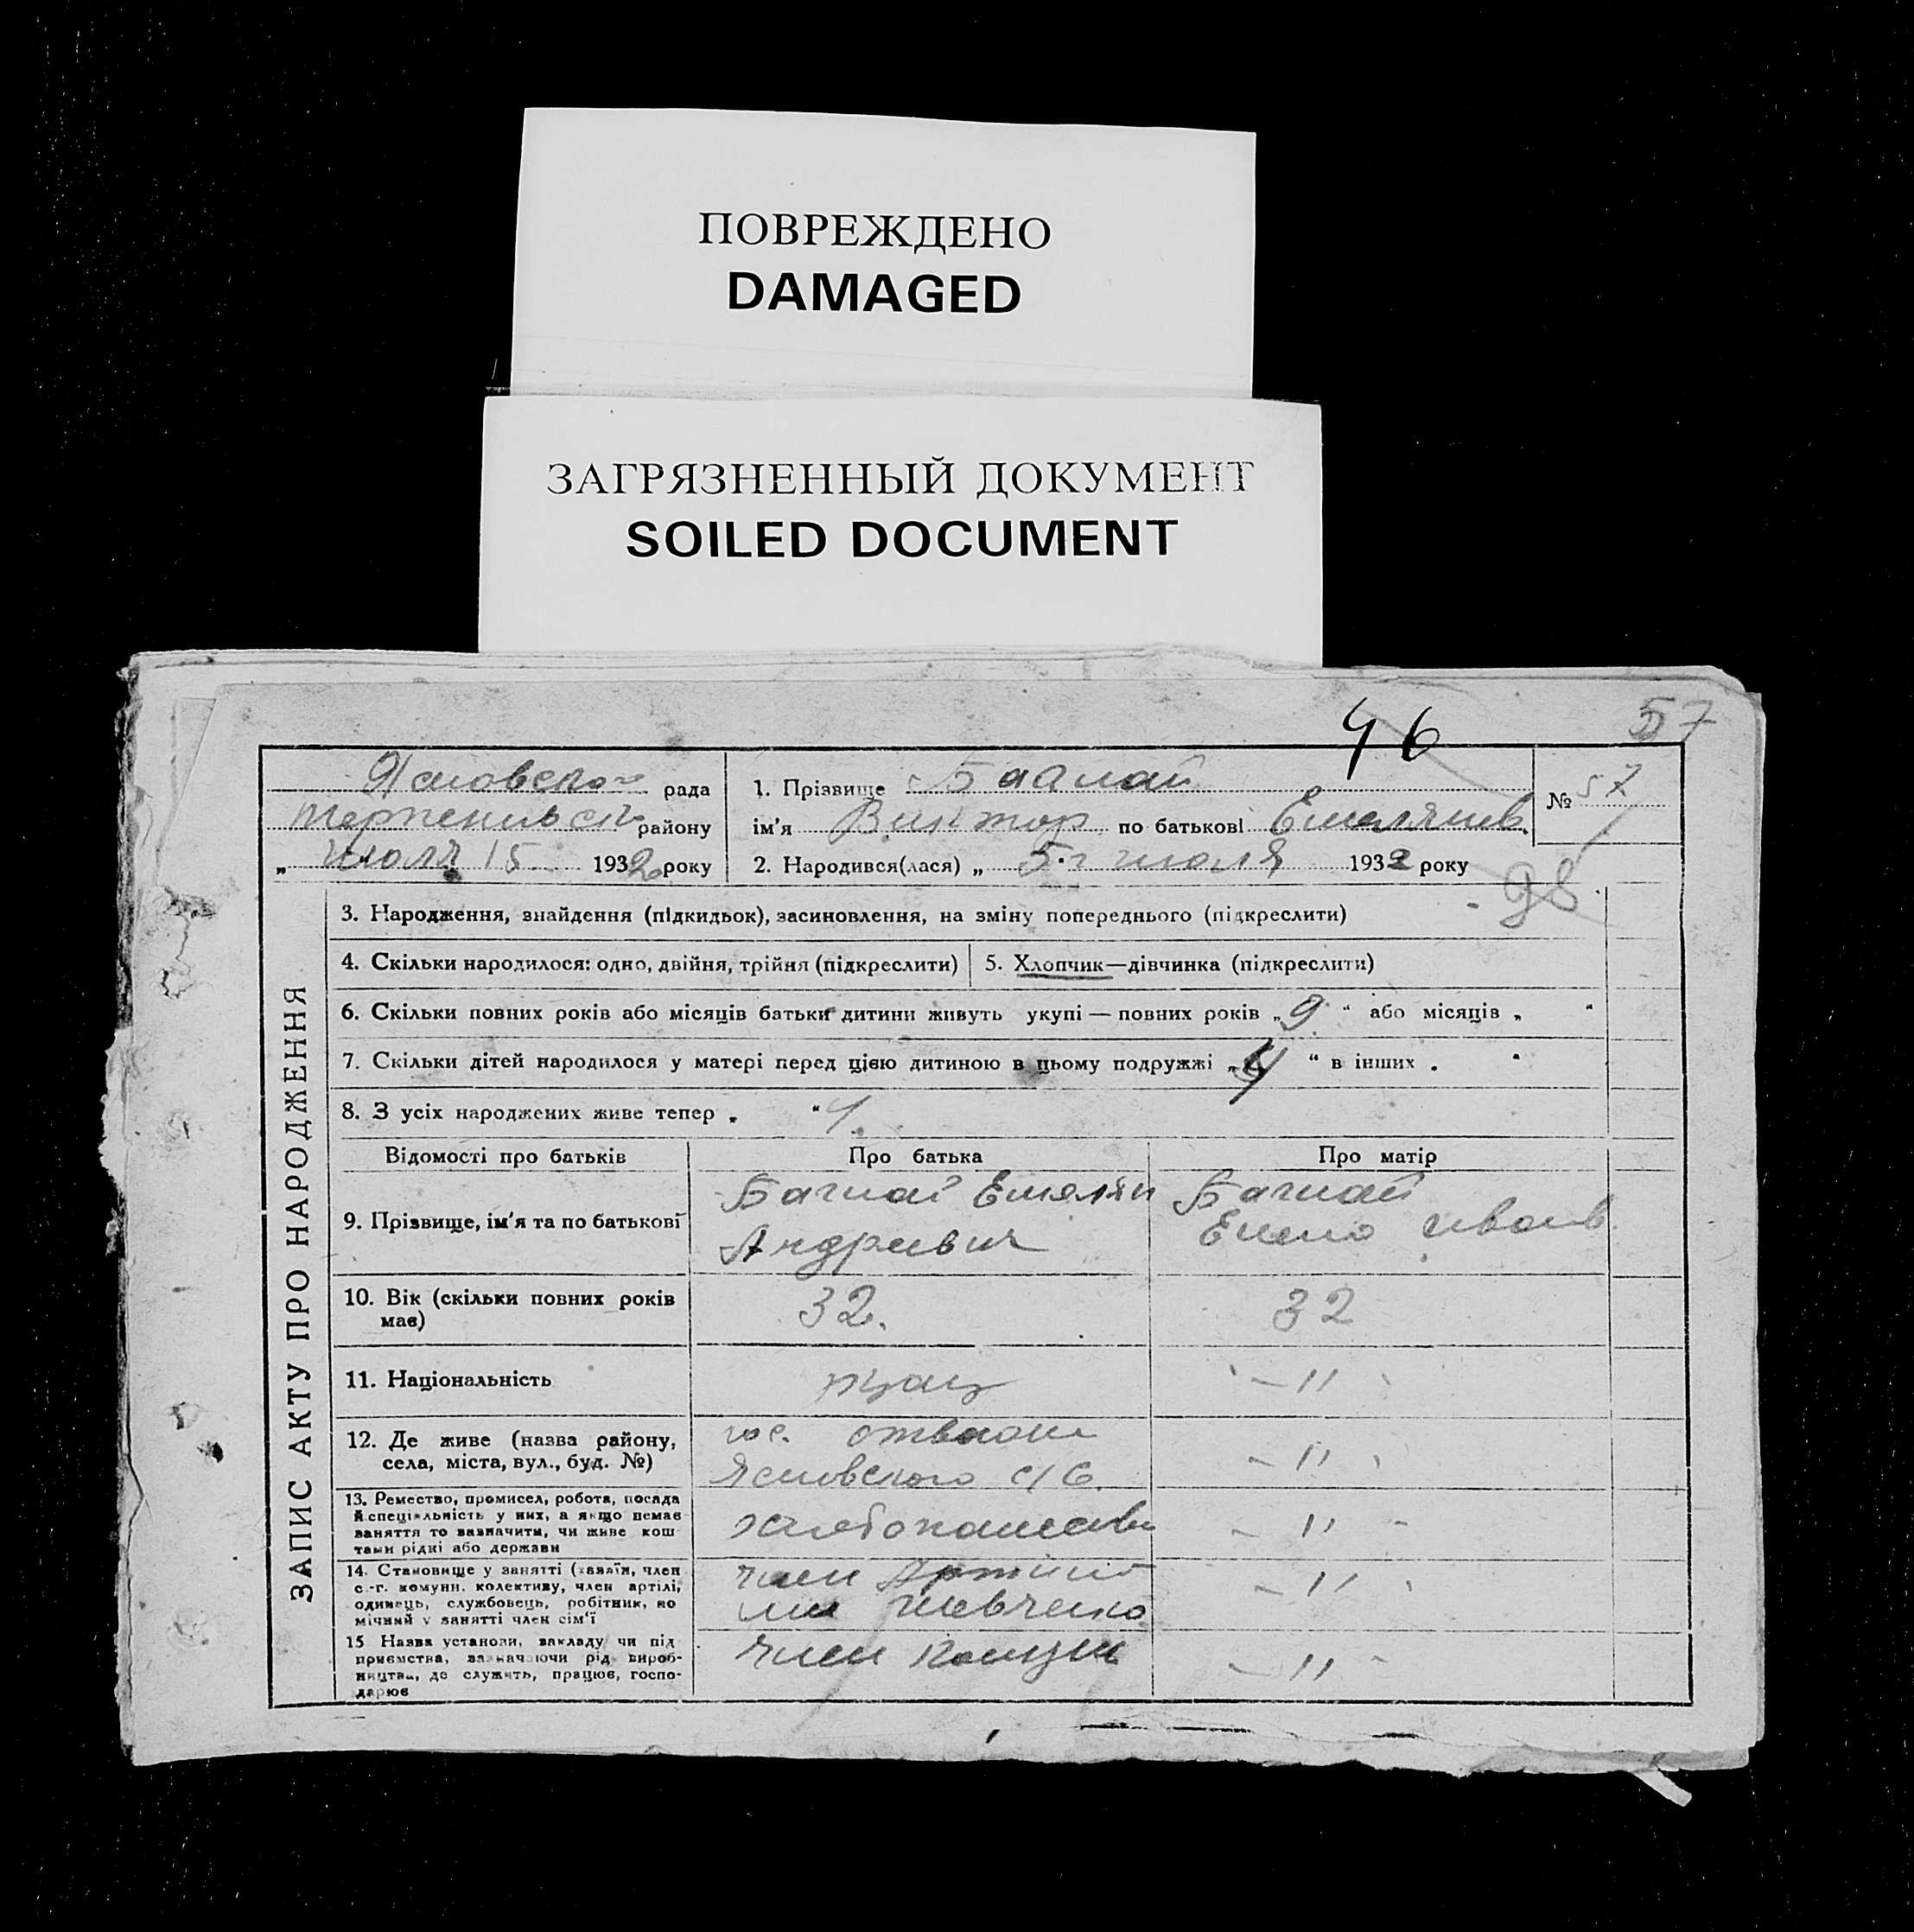 ПОВРЕЖДЕНО
DAMAGED
ЗАГРЯЗНЕННЫЙ ДОКУМЕНТ
SOILED DOCUMENT
46
57
рада
району
июля 15 1932 року
1. Прізвище
ім'я Виктор по батькові Емелянов.
2. Народився(лася) „ 5-г июля 1932 року
№ 57
98
ЗАПИС АКТУ ПРО НАРОДЖЕННЯ
3. Народження, знайдення (підкидьок), засиновлення, на зміну попереднього (підкреслити)
4. Скільки народилося: одно, двійня, трійня (підкреслити)
5. Хлопчик—дівчинка (підкреслити)
6. Скільки повних років або місяців батьки дитини живуть укупі — повних років „9“ або місяців „ “
7. Скільки дітей народилося у матері перед цією дитиною в цьому подружжі „4“ в інших „ “
8. З усіх народжених живе тепер „ “ 4.
Відомості про батьків
Про батька
Про матір
9. Прізвище, ім'я та по батькові
Емелян
Андреевич
10. Вік (скільки повних років
має)
32.
32
11. Національність
–〃–
12. Де живе (назва району,
села, міста, вул., буд. №)
с/С.
–〃–
13. Ремество, промисел, робота, посада
й спеціяльність у них, а якщо немає
заняття то зазначити, чи живе кош
тами рідні або держави
–〃–
14. Становище у занятті (хазяїн, член
с.-г. комуни, колективу, член артілі,
одинець, службовець, робітник, по
мічний у занятті член сім'ї
член
им Шевченко
–〃–
15 Назва установи, закладу чи під
приємства, зазначаючи рід вироб-
ництва, де служить, працює, госпо-
дарює
член
–〃–